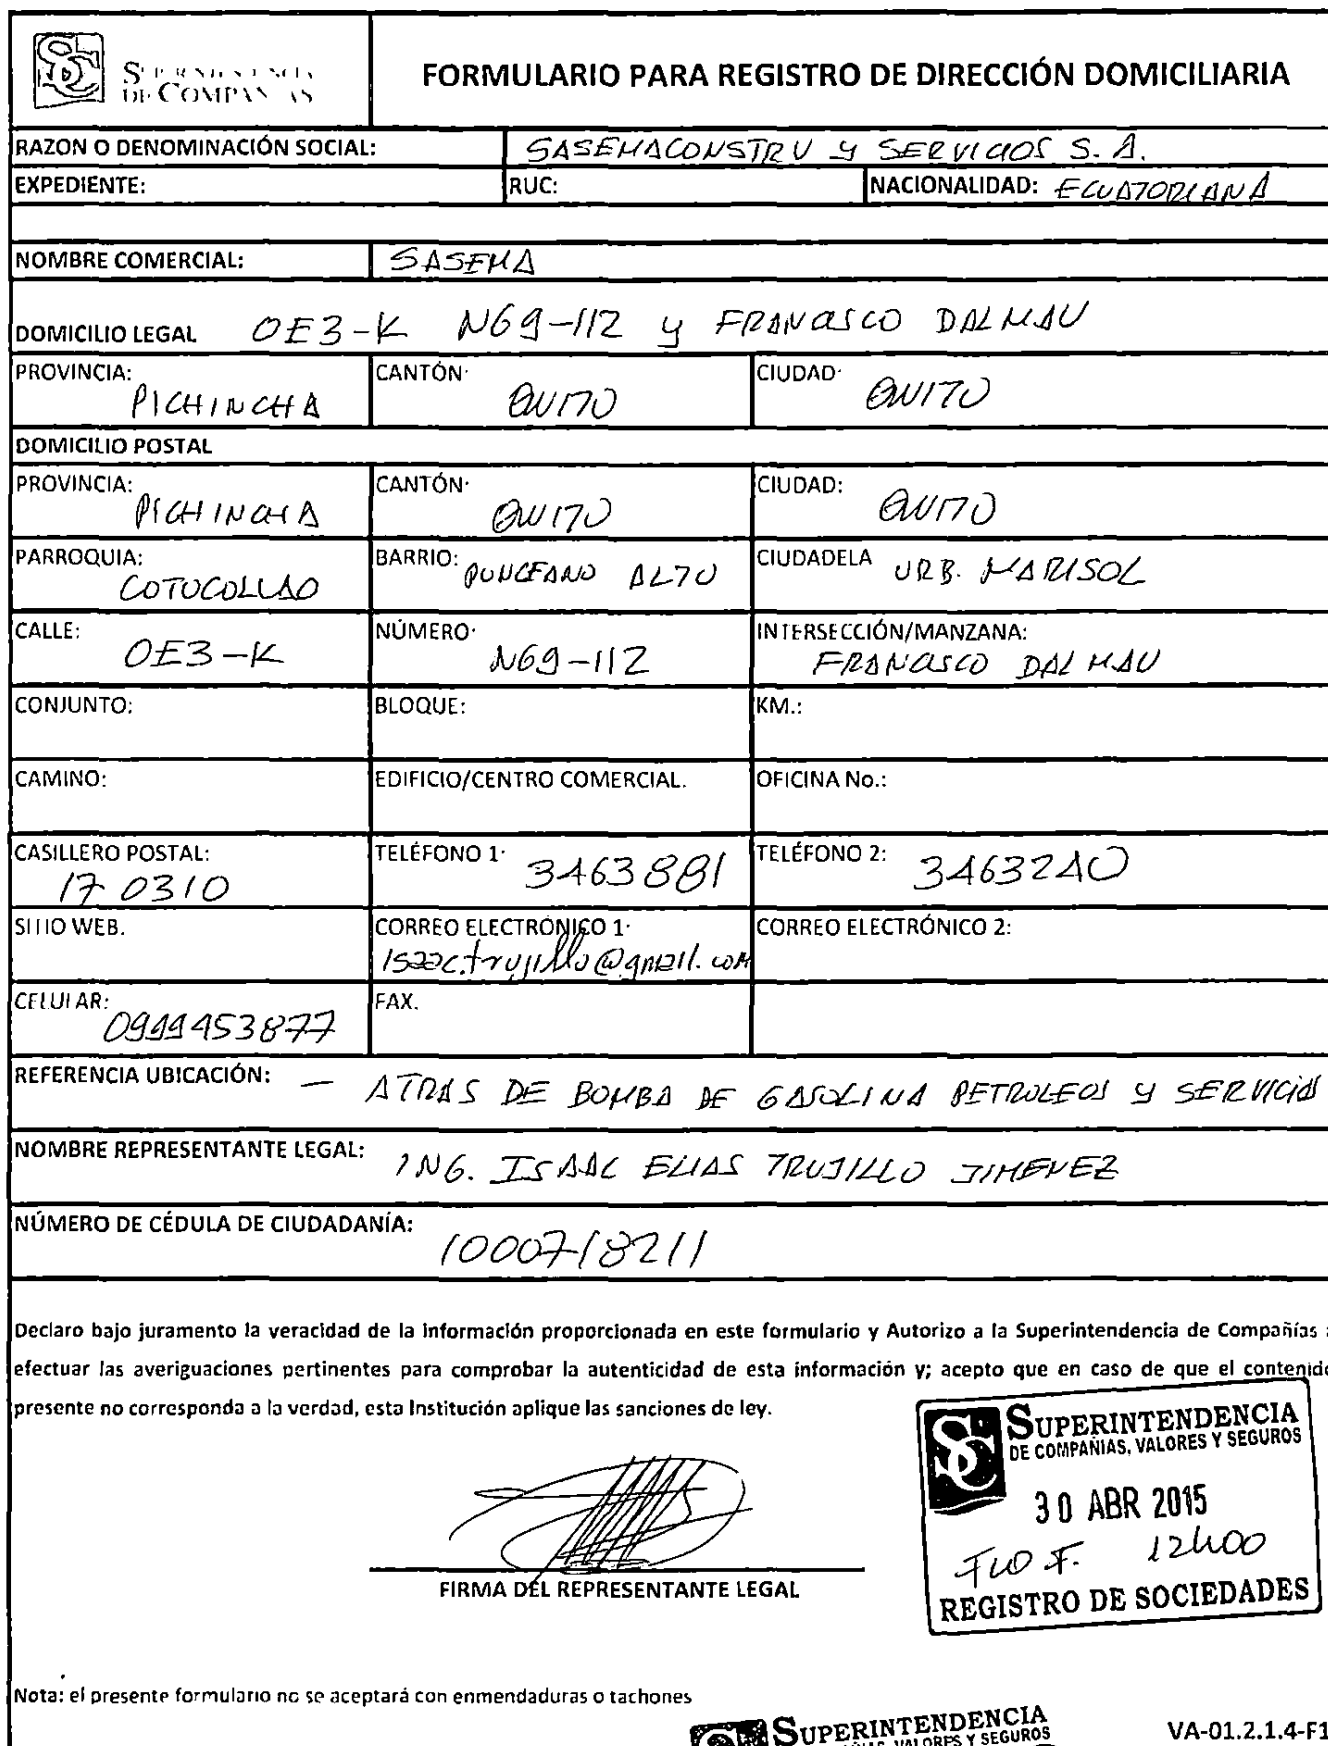 SUPERINTENDENCIA
DE COMPAÑIAS
FORMULARIO PARA REGISTRO DE DIRECCIÓN DOMICILIARIA
RAZON O DENOMINACIÓN SOCIAL: SASEMACONSTRU Y SERVICIOS S.A.
EXPEDIENTE: RUC: NACIONALIDAD: ECUATORIANA
NOMBRE COMERCIAL: SASEMA
DOMICILIO LEGAL OE3-K N69-112 y FRANCISCO DALMAU
PROVINCIA: PICHINCHA CANTÓN: QUITO CIUDAD: QUITO
DOMICILIO POSTAL
PROVINCIA: PICHINCHA CANTÓN: QUITO CIUDAD: QUITO
PARROQUIA: COTOCOLLAO BARRIO: PONCEANO ALTO CIUDADELA URB. MARISOL
CALLE: OE3-K NÚMERO: N69-112 INTERSECCIÓN/MANZANA: FRANCISCO DALMAU
CONJUNTO: BLOQUE: KM.:
CAMINO: EDIFICIO/CENTRO COMERCIAL. OFICINA No.:
CASILLERO POSTAL: 17 0310 TELÉFONO 1: 3463881 TELÉFONO 2: 3463240
SITIO WEB. CORREO ELECTRÓNICO 1: isaac.trujillo@gmail.com CORREO ELECTRÓNICO 2:
CELULAR: 0999453877 FAX.
REFERENCIA UBICACIÓN: — ATRAS DE BOMBA DE GASOLINA PETROLEOS Y SERVICIOS
NOMBRE REPRESENTANTE LEGAL: ING. ISAAC ELIAS TRUJILLO JIMENEZ
NÚMERO DE CÉDULA DE CIUDADANÍA: 1000718211
Declaro bajo juramento la veracidad de la información proporcionada en este formulario y Autorizo a la Superintendencia de Compañías a
efectuar las averiguaciones pertinentes para comprobar la autenticidad de esta información y; acepto que en caso de que el contenido
presente no corresponda a la verdad, esta Institución aplique las sanciones de ley.
SUPERINTENDENCIA
DE COMPAÑIAS, VALORES Y SEGUROS
30 ABR 2015
12h00
REGISTRO DE SOCIEDADES
FIRMA DEL REPRESENTANTE LEGAL
Nota: el presente formulario no se aceptará con enmendaduras o tachones
SUPERINTENDENCIA
VALORES Y SEGUROS
VA-01.2.1.4-F1